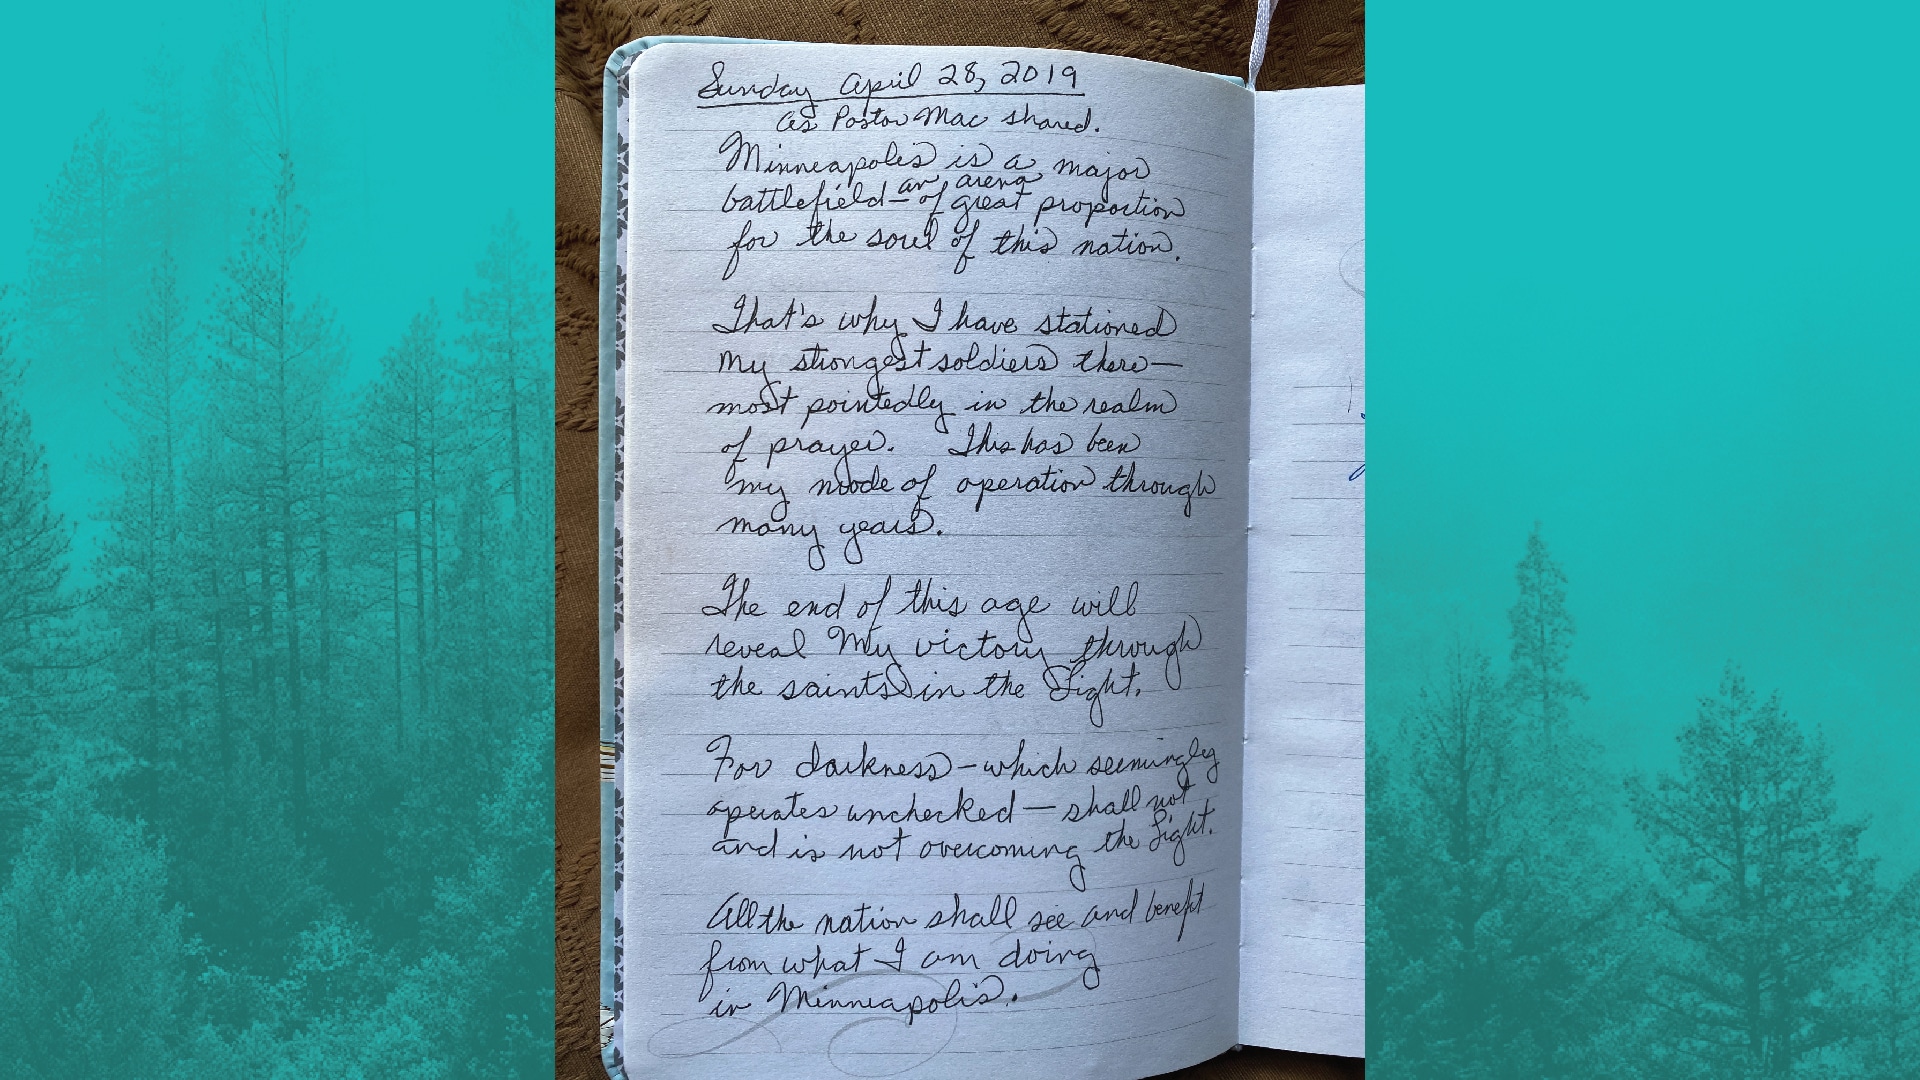 Sunday April 28, 2019
As Pastor Mac shared.
Minneapolis is a major
battlefield — an arena of great proportion
for the soul of this nation.
That's why I have stationed
My strongest soldiers there —
most pointedly in the realm
of prayer. This has been
my mode of operation through
many years.
The end of this age will
reveal My victory through
the saints in the Light.
For darkness — which seemingly
operates unchecked — shall not
and is not overcoming the Light.
All the nation shall see and benefit
from what I am doing
in Minneapolis.